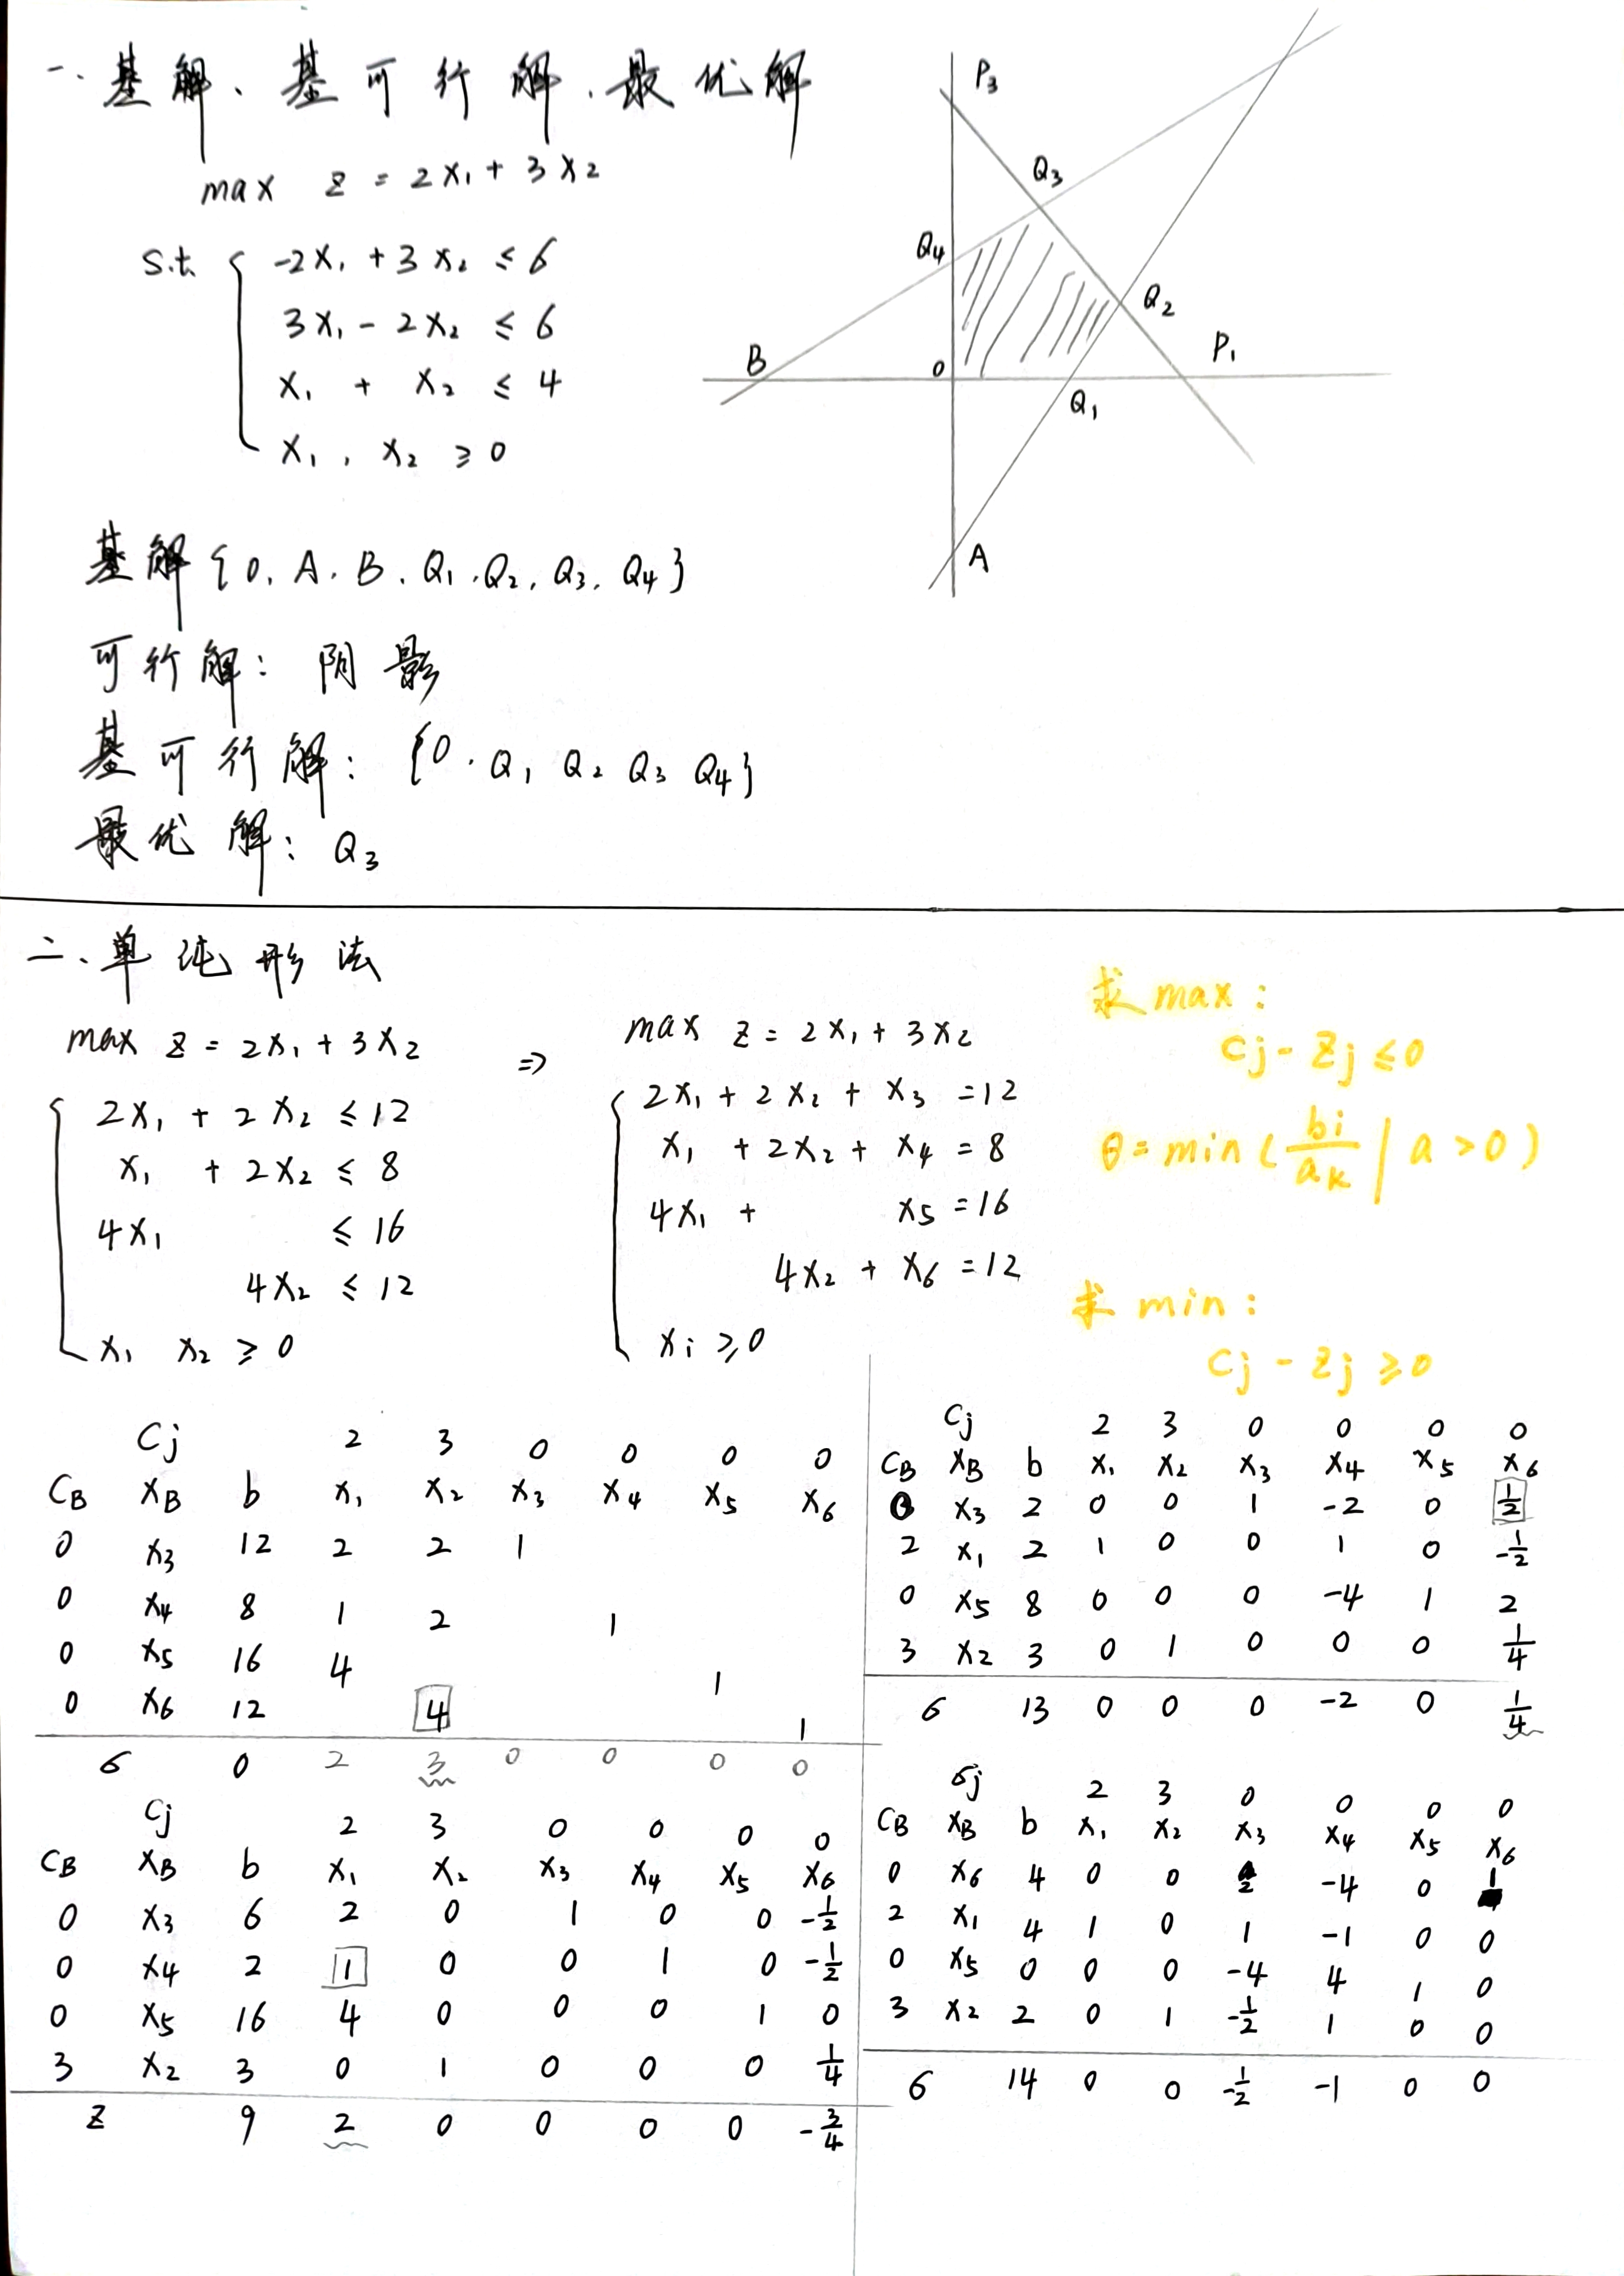 一、基解、基可行解、最优解
max z = 2x₁ + 3x₂
s.t. { -2x₁ + 3x₂ ≤ 6
3x₁ - 2x₂ ≤ 6
x₁ + x₂ ≤ 4
x₁, x₂ ≥ 0
P₃
Q₃
Q₄
Q₂
B
0
P₁
Q₁
A
基解{0. A. B. Q₁. Q₂. Q₃. Q₄}
可行解: 阴影
基可行解: {0. Q₁ Q₂ Q₃ Q₄}
最优解: Q₃
二、单纯形法
max z = 2x₁ + 3x₂
2x₁ + 2x₂ ≤ 12
x₁ + 2x₂ ≤ 8
4x₁ ≤ 16
4x₂ ≤ 12
x₁ x₂ ≥ 0
⇒
max z = 2x₁ + 3x₂
2x₁ + 2x₂ + x₃ = 12
x₁ + 2x₂ + x₄ = 8
4x₁ + x₅ = 16
4x₂ + x₆ = 12
xi ≥ 0
求max:
Cj - Zj ≤ 0
θ = min ( bi/ak | a > 0 )
求min:
Cj - Zj ≥ 0
Cj 2 3 0 0 0 0
CB XB b x₁ x₂ x₃ x₄ x₅ x₆
0 x₃ 12 2 2 1
0 x₄ 8 1 2 1
0 x₅ 16 4 1
0 x₆ 12 4 1
6 0 2 3 0 0 0 0
Cj 2 3 0 0 0 0
CB XB b x₁ x₂ x₃ x₄ x₅ x₆
0 x₃ 6 2 0 1 0 0 -1/2
0 x₄ 2 1 0 0 1 0 -1/2
0 x₅ 16 4 0 0 0 1 0
3 x₂ 3 0 1 0 0 0 1/4
z 9 2 0 0 0 0 -3/4
Cj 2 3 0 0 0 0
CB XB b x₁ x₂ x₃ x₄ x₅ x₆
0 x₃ 2 0 0 1 -2 0 1/2
2 x₁ 2 1 0 0 1 0 -1/2
0 x₅ 8 0 0 0 -4 1 2
3 x₂ 3 0 1 0 0 0 1/4
6 13 0 0 0 -2 0 1/4
σj 2 3 0 0 0 0
CB XB b x₁ x₂ x₃ x₄ x₅ x₆
0 x₆ 4 0 0 2 -4 0 1
2 x₁ 4 1 0 1 -1 0 0
0 x₅ 0 0 0 -4 4 1 0
3 x₂ 2 0 1 -1/2 1 0 0
6 14 0 0 -1/2 -1 0 0